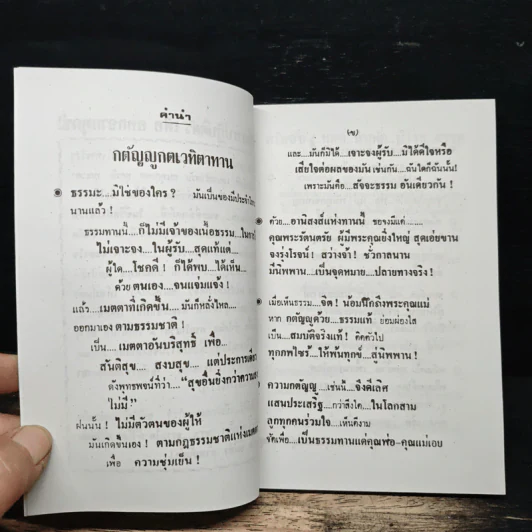 คำนำ
กตัญญูกตเวทิตาทาน
ธรรมะ....มิใช่ของใคร ? มันเป็นของมีประจำโลก
นานแล้ว !
ธรรมทานนี้....ก็ไม่มีเจ้าของเนื้อธรรม....ในการ
ไม่เจาะจง....ในผู้รับ....สุดแท้แต่....
ผู้ใด....โชคดี ! ก็ได้พบ....ได้เห็น....
ด้วย ตนเอง....จนแจ่มแจ้ง !
แล้ว....เมตตาที่เกิดขึ้น....มันก็หลั่งไหล....
ออกมาเอง ตามธรรมชาติ !
เป็น....เมตตาอันบริสุทธิ์ เพื่อ....
สันติสุข.... สงบสุข.... แต่ประการเดียว
ดังพุทธพจน์ที่ว่า...."สุขอื่นยิ่งกว่าความ
ไม่มี !"
ฝนนั้น ! ไม่มีตัวตนของผู้ให้
มันเกิดขึ้นเอง ! ตามกฎธรรมชาติแห่งเมตตา
เพื่อ ความชุ่มเย็น !
(ข)
และ....มันก็มิได้....เจาะจงผู้รับ....มิได้ดีใจหรือ
เสียใจต่อผลของมัน เช่นกัน....ฉันใดก็ฉันนั้น!
เพราะมันคือ....สัจจะธรรม อันเดียวกัน !
ด้วย....อานิสงส์แห่งทานนี้ ขอจงมีแด่........
คุณพระรัตนตรัย ผู้มีพระคุณยิ่งใหญ่ สุดเอ่ยขาน
จงรุ่งโรจน์ ! สว่างจ้า ! ชั่วกาลนาน
มีนิพพาน....เป็นจุดหมาย....ปลายทางจริง !
เมื่อเห็นธรรม....จิต ! น้อมนึกถึงพระคุณแม่
หาก กตัญญูด้วย....ธรรมแท้ ย่อมผ่องใส
เป็น....สมบัติจริงแท้ ! ติดตัวไป
ทุกภพไซร้..ให้พ้นทุกข์....ลู่นิพพาน !
ความกตัญญู....เช่นนี้....จึงดีเลิศ
แสนประเสริฐ....กว่าสิ่งใด....ในโลกสาม
ลูกทุกคนร่วมใจ....เห็นดีงาม
จัดเพื่อ....เป็นธรรมทานแด่คุณพ่อ-คุณแม่เอย